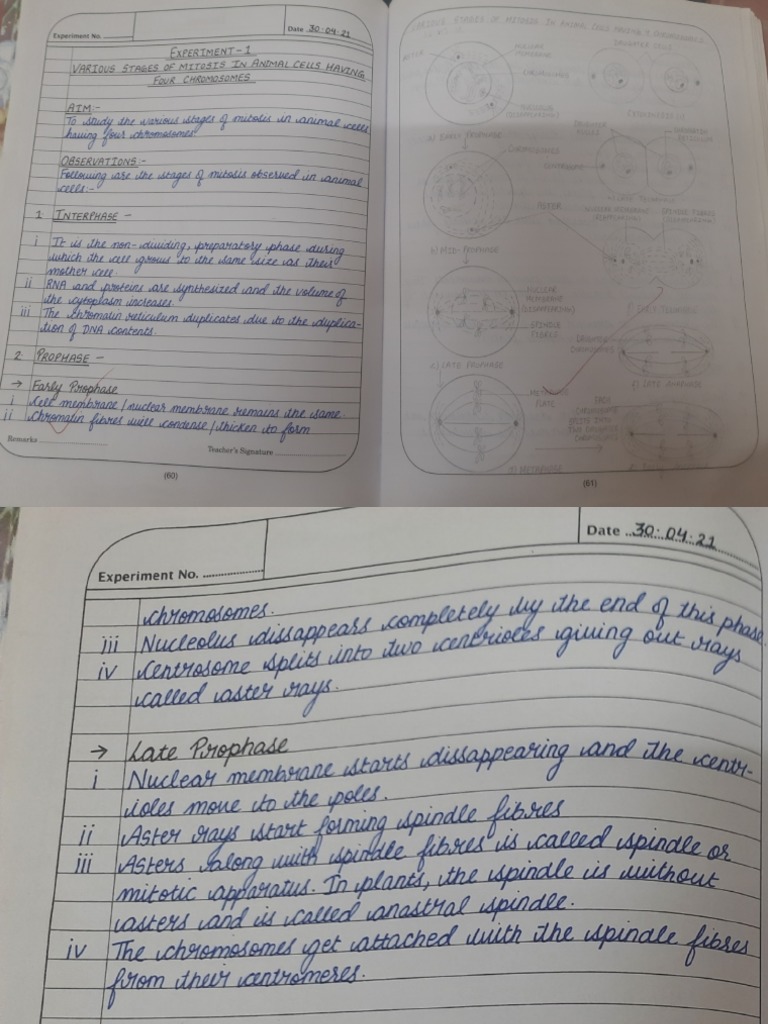 Experiment No.
Date 30.04.21
EXPERIMENT-1
VARIOUS STAGES OF MITOSIS IN ANIMAL CELLS HAVING
FOUR CHROMOSOMES
AIM:-
To study the various stages of mitosis in animal cells
having four chromosomes.
OBSERVATIONS:-
Following are the stages of mitosis observed in animal
cells:-
1. INTERPHASE -
i It is the non-dividing, preparatory phase during
which the cell grows to the same size as their
mother cell.
ii RNA and proteins are synthesized and the volume of
the cytoplasm increases.
iii The chromatin reticulum duplicates due to the duplica-
tion of DNA contents.
2. PROPHASE -
→ Early Prophase
i Cell membrane / nuclear membrane remains the same.
ii Chromatin fibres will condense / thicken to form
Remarks
Teacher's Signature
(60)
VARIOUS STAGES OF MITOSIS IN ANIMAL CELLS HAVING 4 CHROMOSOMES
ASTER
NUCLEAR
MEMBRANE
DAUGHTER CELLS
CHROMOSOMES
NUCLEOLUS
(DISAPPEARING)
A) EARLY PROPHASE
DAUGHTER
NUCLEI
CHROMATIN
RETICULUM
CENTROMERE
ASTER
SPINDLE FIBRES
(DISAPPEARING)
B) MID-PROPHASE
NUCLEAR
MEMBRANE
(DISAPPEARING)
SPINDLE
FIBRES
DAUGHTER
CHROMOSOMES
C) LATE PROPHASE
F) LATE ANAPHASE
METAPHASE
PLATE
EACH
CHROMOSOME
SPLITS INTO
TWO DAUGHTER
CHROMOSOMES
D) METAPHASE
(61)
Experiment No.
Date 30.04.21
chromosomes.
iii Nucleolus dissappears completely by the end of this phase.
iv Centrosome splits into two centrioles giving out rays
called aster rays.
→ Late Prophase
i Nuclear membrane starts dissappearing and the centr-
ioles move to the poles.
ii Aster rays start forming spindle fibres
iii Asters along with spindle fibres is called spindle or
mitotic apparatus. In plants, the spindle is without
asters and is called anastral spindle.
iv The chromosomes get attached with the spindle fibres
from their centromeres.